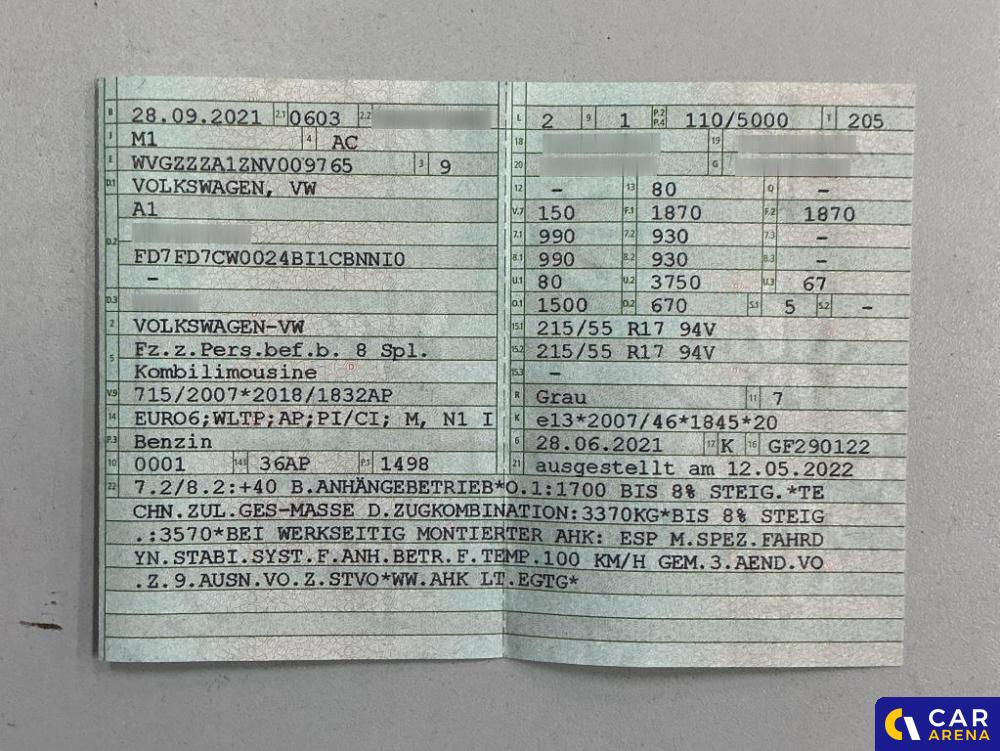 B 28.09.2021 2.1 0603 2.2
J M1 4 AC
E WVGZZZA1ZNV009765 3 9
D.1 VOLKSWAGEN, VW
A1
D.2
FD7FD7CW0024BI1CBNNI0
–
D.3
2 VOLKSWAGEN-VW
5 Fz.z.Pers.bef.b. 8 Spl.
Kombilimousine
V.9 715/2007*2018/1832AP
14 EURO6;WLTP;AP;PI/CI; M, N1 I
P.3 Benzin
10 0001 14.1 36AP P.1 1498
L 2 9 1 P.2 P.4 110/5000 T 205
18 19
20 G
12 – 13 80 Q –
V.7 150 F.1 1870 F.2 1870
7.1 990 7.2 930 7.3 –
8.1 990 8.2 930 8.3 –
U.1 80 U.2 3750 U.3 67
O.1 1500 O.2 670 S.1 5 S.2 –
15.1 215/55 R17 94V
15.2 215/55 R17 94V
15.3 –
R Grau 11 7
K e13*2007/46*1845*20
6 28.06.2021 17 K 16 GF290122
21 ausgestellt am 12.05.2022
22 7.2/8.2:+40 B.ANHÄNGEBETRIEB*O.1:1700 BIS 8% STEIG.*TE
CHN.ZUL.GES-MASSE D.ZUGKOMBINATION:3370KG*BIS 8% STEIG
.:3570*BEI WERKSEITIG MONTIERTER AHK: ESP M.SPEZ.FAHRD
YN.STABI.SYST.F.ANH.BETR.F.TEMP.100 KM/H GEM.3.AEND.VO
.Z.9.AUSN.VO.Z.STVO*WW.AHK LT.EGTG*
CAR
ARENA